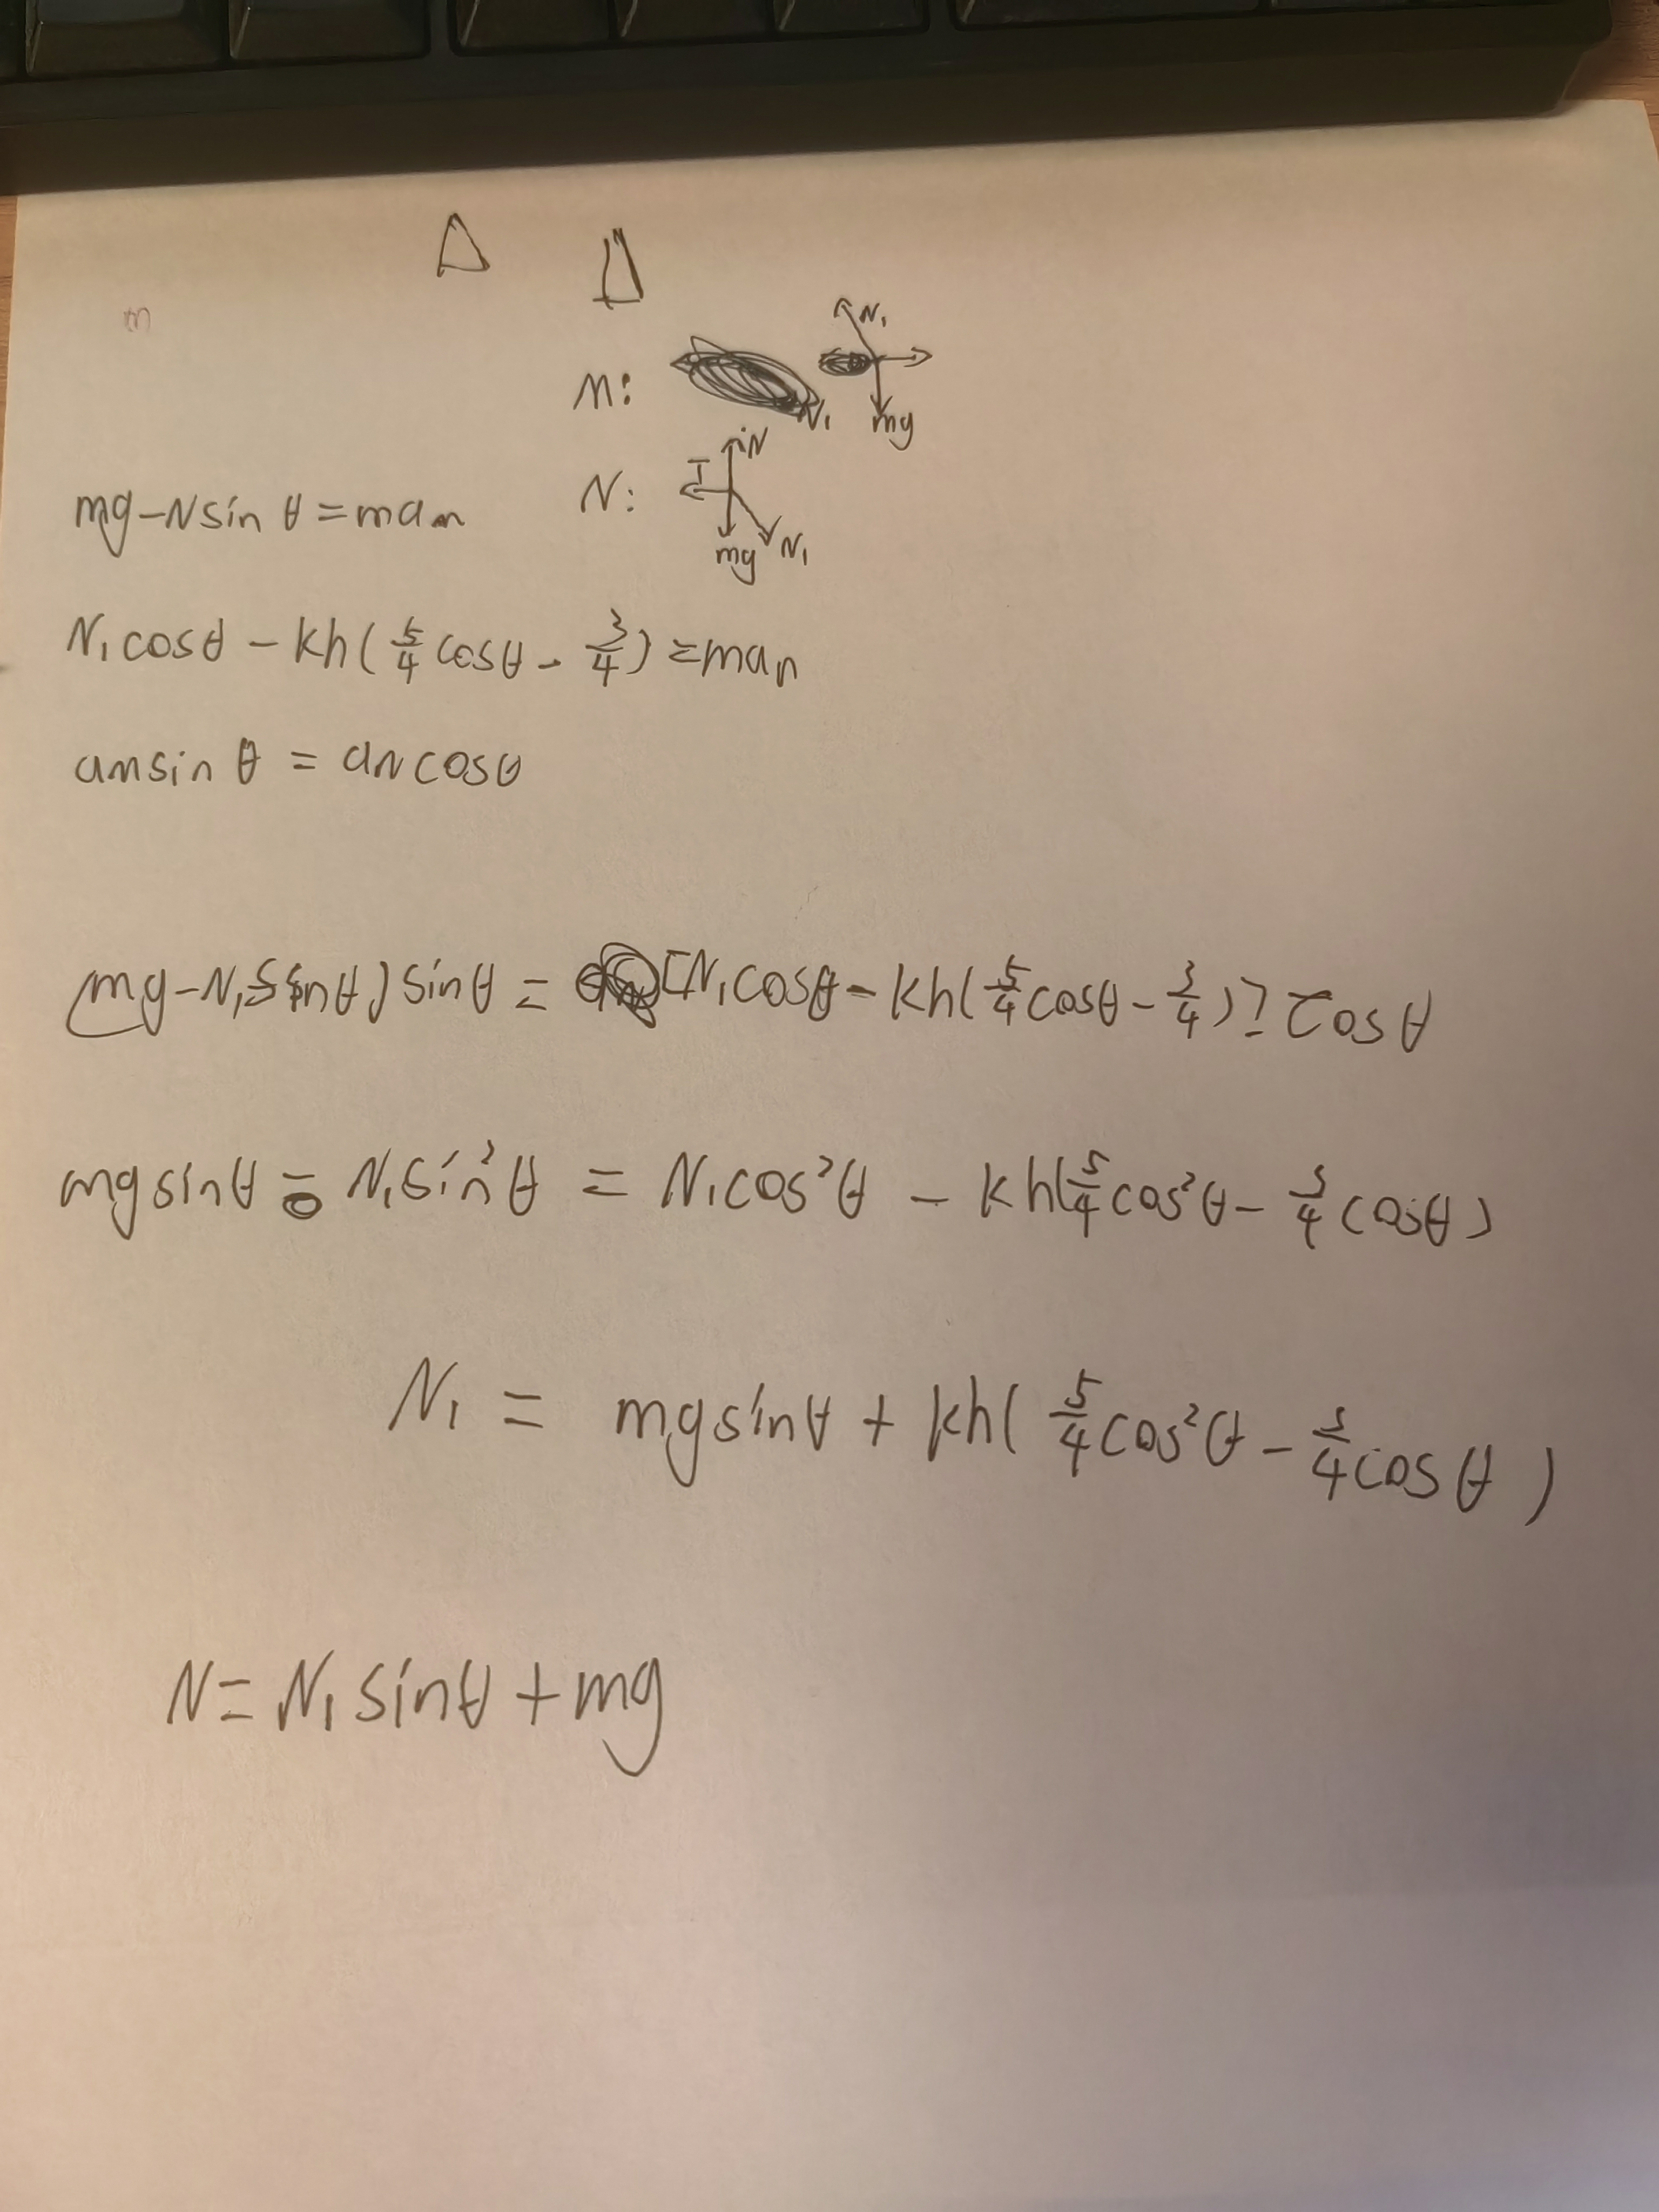 m
N₁
M: N₁ mg
N
mg-Nsin θ=maₘ N: T
mg N₁
N₁cosθ - kh(5/4 cosθ - 3/4)=maₙ
aₘsin θ = aₙcosθ
(mg-N₁sinθ)sinθ = [N₁cosθ-kh(5/4cosθ-3/4)]cosθ
mgsinθ - N₁sin²θ = N₁cos²θ - kh(5/4cos²θ-3/4cosθ)
N₁ = mgsinθ+kh(5/4cos²θ-3/4cosθ)
N=N₁sinθ+mg